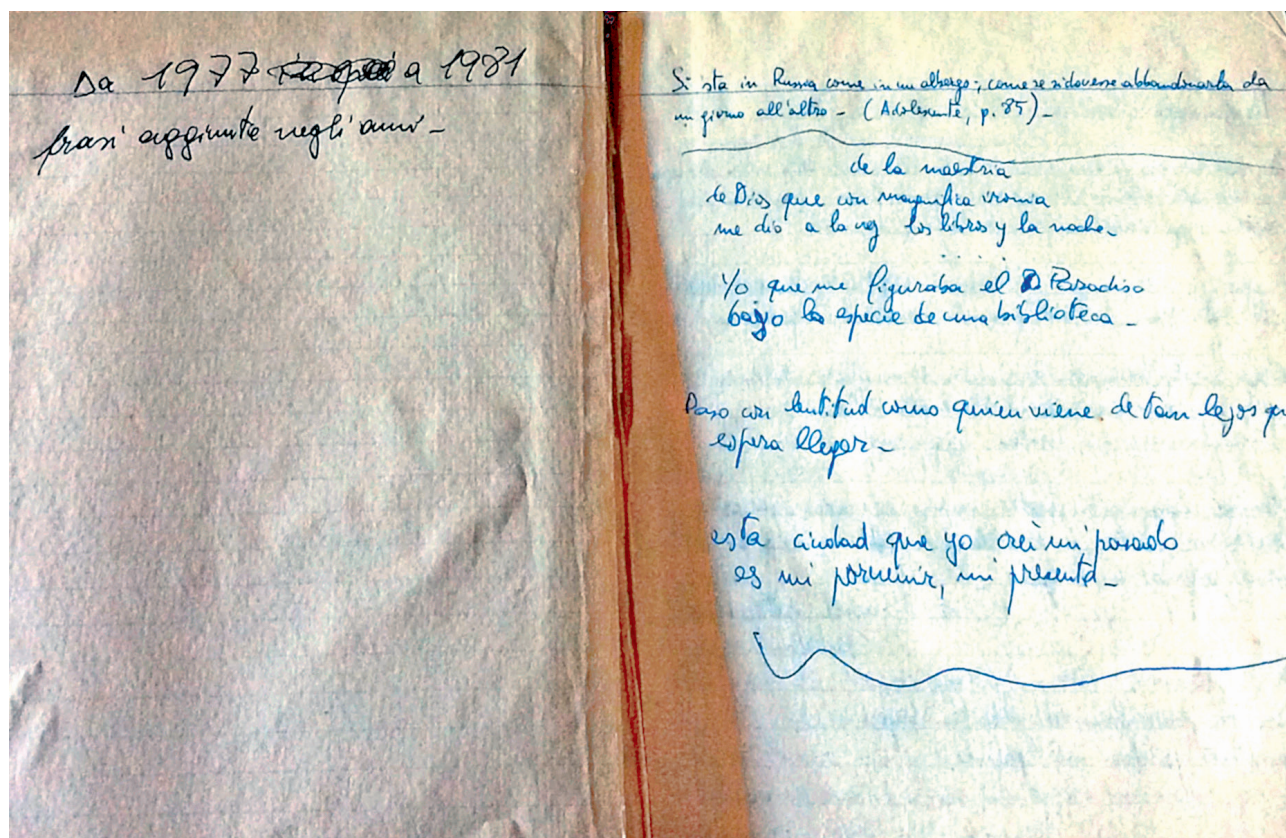 Da 1977 a 1981
frasi aggiunte negli anni -
Si sta in Russia come in un albergo; come se si dovesse abbandonarla da
un giorno all'altro - (Adolescente, p. 85) -
de la maestria
de Dios que con magnifica ironia
me dio a la vez los libros y la noche -
. . . . .
Yo que me figuraba el Paradiso
bajo la especie de una biblioteca -
Paso con lentitud como quien viene de tan lejos qu
espera llegar -
esta ciudad que yo creì mi pasado
es mi porvenir, mi presente -